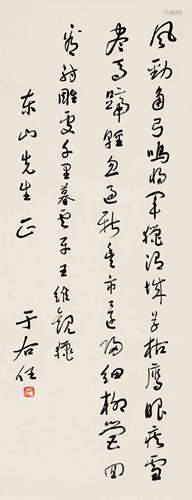 風勁角弓鳴將軍獵渭城草枯鷹眼疾雪
盡馬蹄輕忽過新豐市還歸細柳營回
看射雕處千里暮雲平王維觀獵
東山先生正
于右任